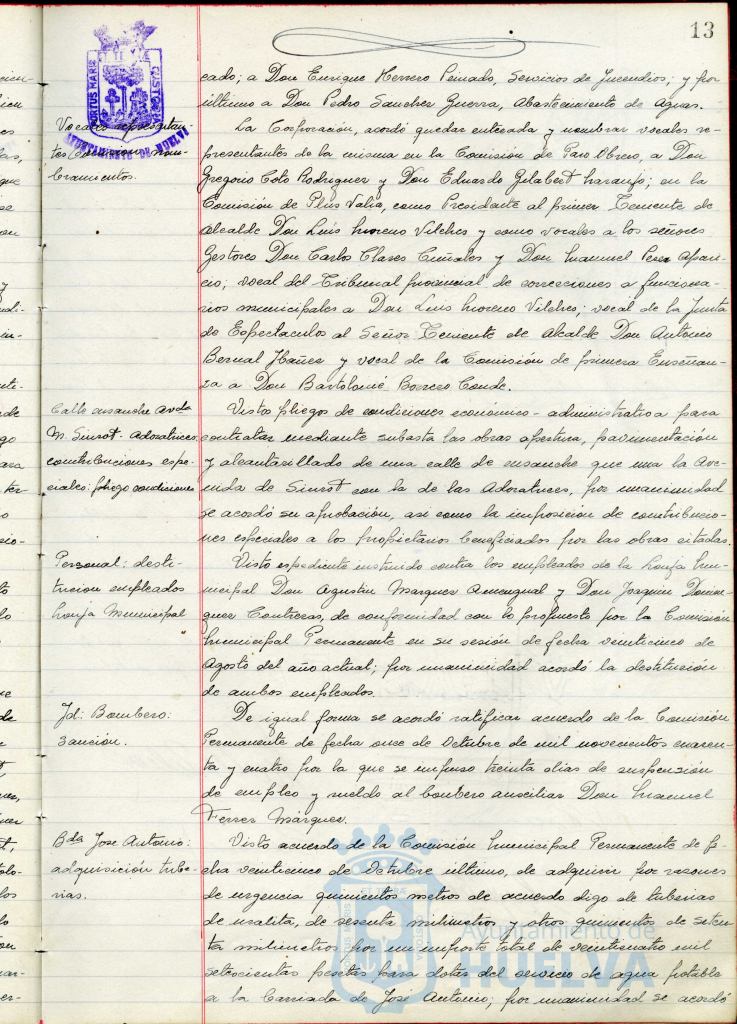 13
cado; a Don Enrique Herrero Peinado, Servicios de Incendios; y por
último a Don Pedro Sanchez Guerra, Abastecimiento de Aguas.
Vocales representan-
tes Comisiones nom-
bramientos.
PORTUS MARIS ET TERRE CUSTODIA
AYUNTAMIENTO DE HUELVA
La Corporación, acordó quedar enterada y nombrar vocales re-
presentantes de la misma en la Comisión de Paro Obrero, a Don
Gregorio Coto Rodriguez y Don Eduardo Gilabert Naranjo; en la
Comisión de Plus Valia, como Presidente al primer Teniente de
Alcalde Don Luis Moreno Vilches y como vocales a los señores
Gestores Don Carlos Clares Cunales y Don Manuel Perez Apari-
cio; vocal del Tribunal provincial de correcciones a funciona-
rios municipales a Don Luis Moreno Vilches; vocal de la Junta
de Espectaculos al Señor Teniente de Alcalde Don Antonio
Bernal Ibañez y vocal de la Comisión de primera Enseñan-
za a Don Bartolomé Borrero Conde.
Calle ensanche Avda
M. Siurot-Adoratrices
contribuciones espe-
ciales: pliego condiciones
Vistos pliegos de condiciones económico-administrativa para
contratar mediante subasta las obras apertura, pavimentación
y alcantarillado de una calle de ensanche que una la Ave-
nida de Siurot con la de las Adoratrices, por unanimidad
se acordó su aprobación, asi como la imposicion de contribucio-
nes especiales a los propietarios beneficiados por las obras citadas.
Personal: desti-
tucion empleados
Lonja Municipal
Visto expediente instruido contra los empleados de la Lonja Mu-
nicipal Don Agustin Marquez Amengual y Don Joaquin Domin-
guez Contreras, de conformidad con lo propuesto por la Comisión
Municipal Permanente en su sesión de fecha veinticinco de
Agosto del año actual; por unanimidad acordó la destitución
de ambos empleados.
Id: Bombero:
sanción.
De igual forma se acordó ratificar acuerdo de la Comisión
Permanente de fecha once de Octubre de mil novecientos cuaren-
ta y cuatro por la que se impuso treinta dias de suspensión
de empleo y sueldo al bombero auxiliar Don Manuel
Ferrer Márquez.
Bda Jose Antonio:
adquisición tube-
rias.
Visto acuerdo de la Comisión Municipal Permanente de fe-
cha veinticinco de Octubre último, de adquirir por razones
de urgencia quinientos metros de acuerdo digo de tuberias
de uralita, de sesenta milimetros y otros quinientos de seten-
ta milimetros por un importe total de veinticuatro mil
setecientas pesetas para dotar del servicio de agua potable
a la barriada de José Antonio; por unanimidad se acordó
Ayuntamiento de
HUELVA